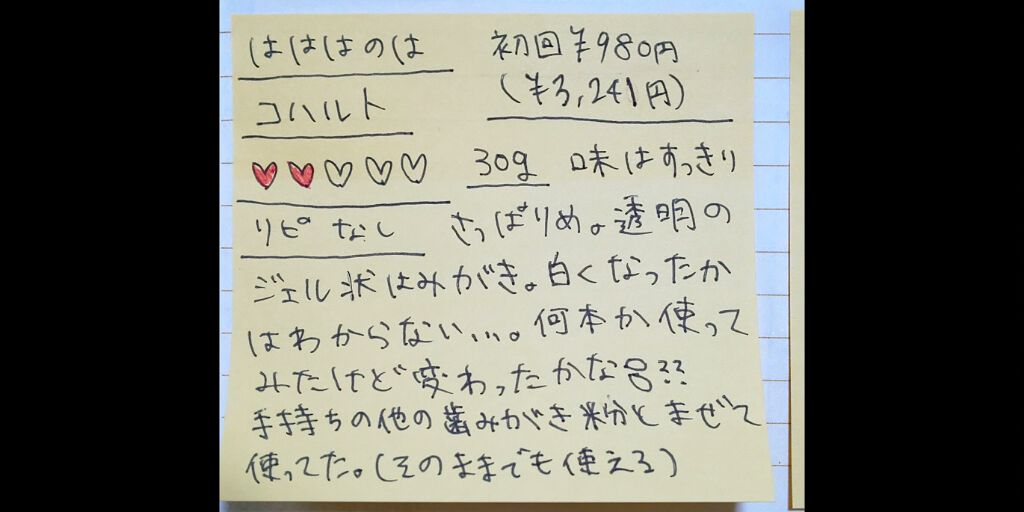 はははのは
初回¥980円
(¥3,241円)
コハルト
30g 味はすっきり
リピなし
さっぱりめ。透明の
ジェル状はみがき。白くなったか
はわからない...。何本か使って
みたけど変わったかな??
手持ちの他の歯みがき粉とまぜて
使ってた。(そのままでも使える)